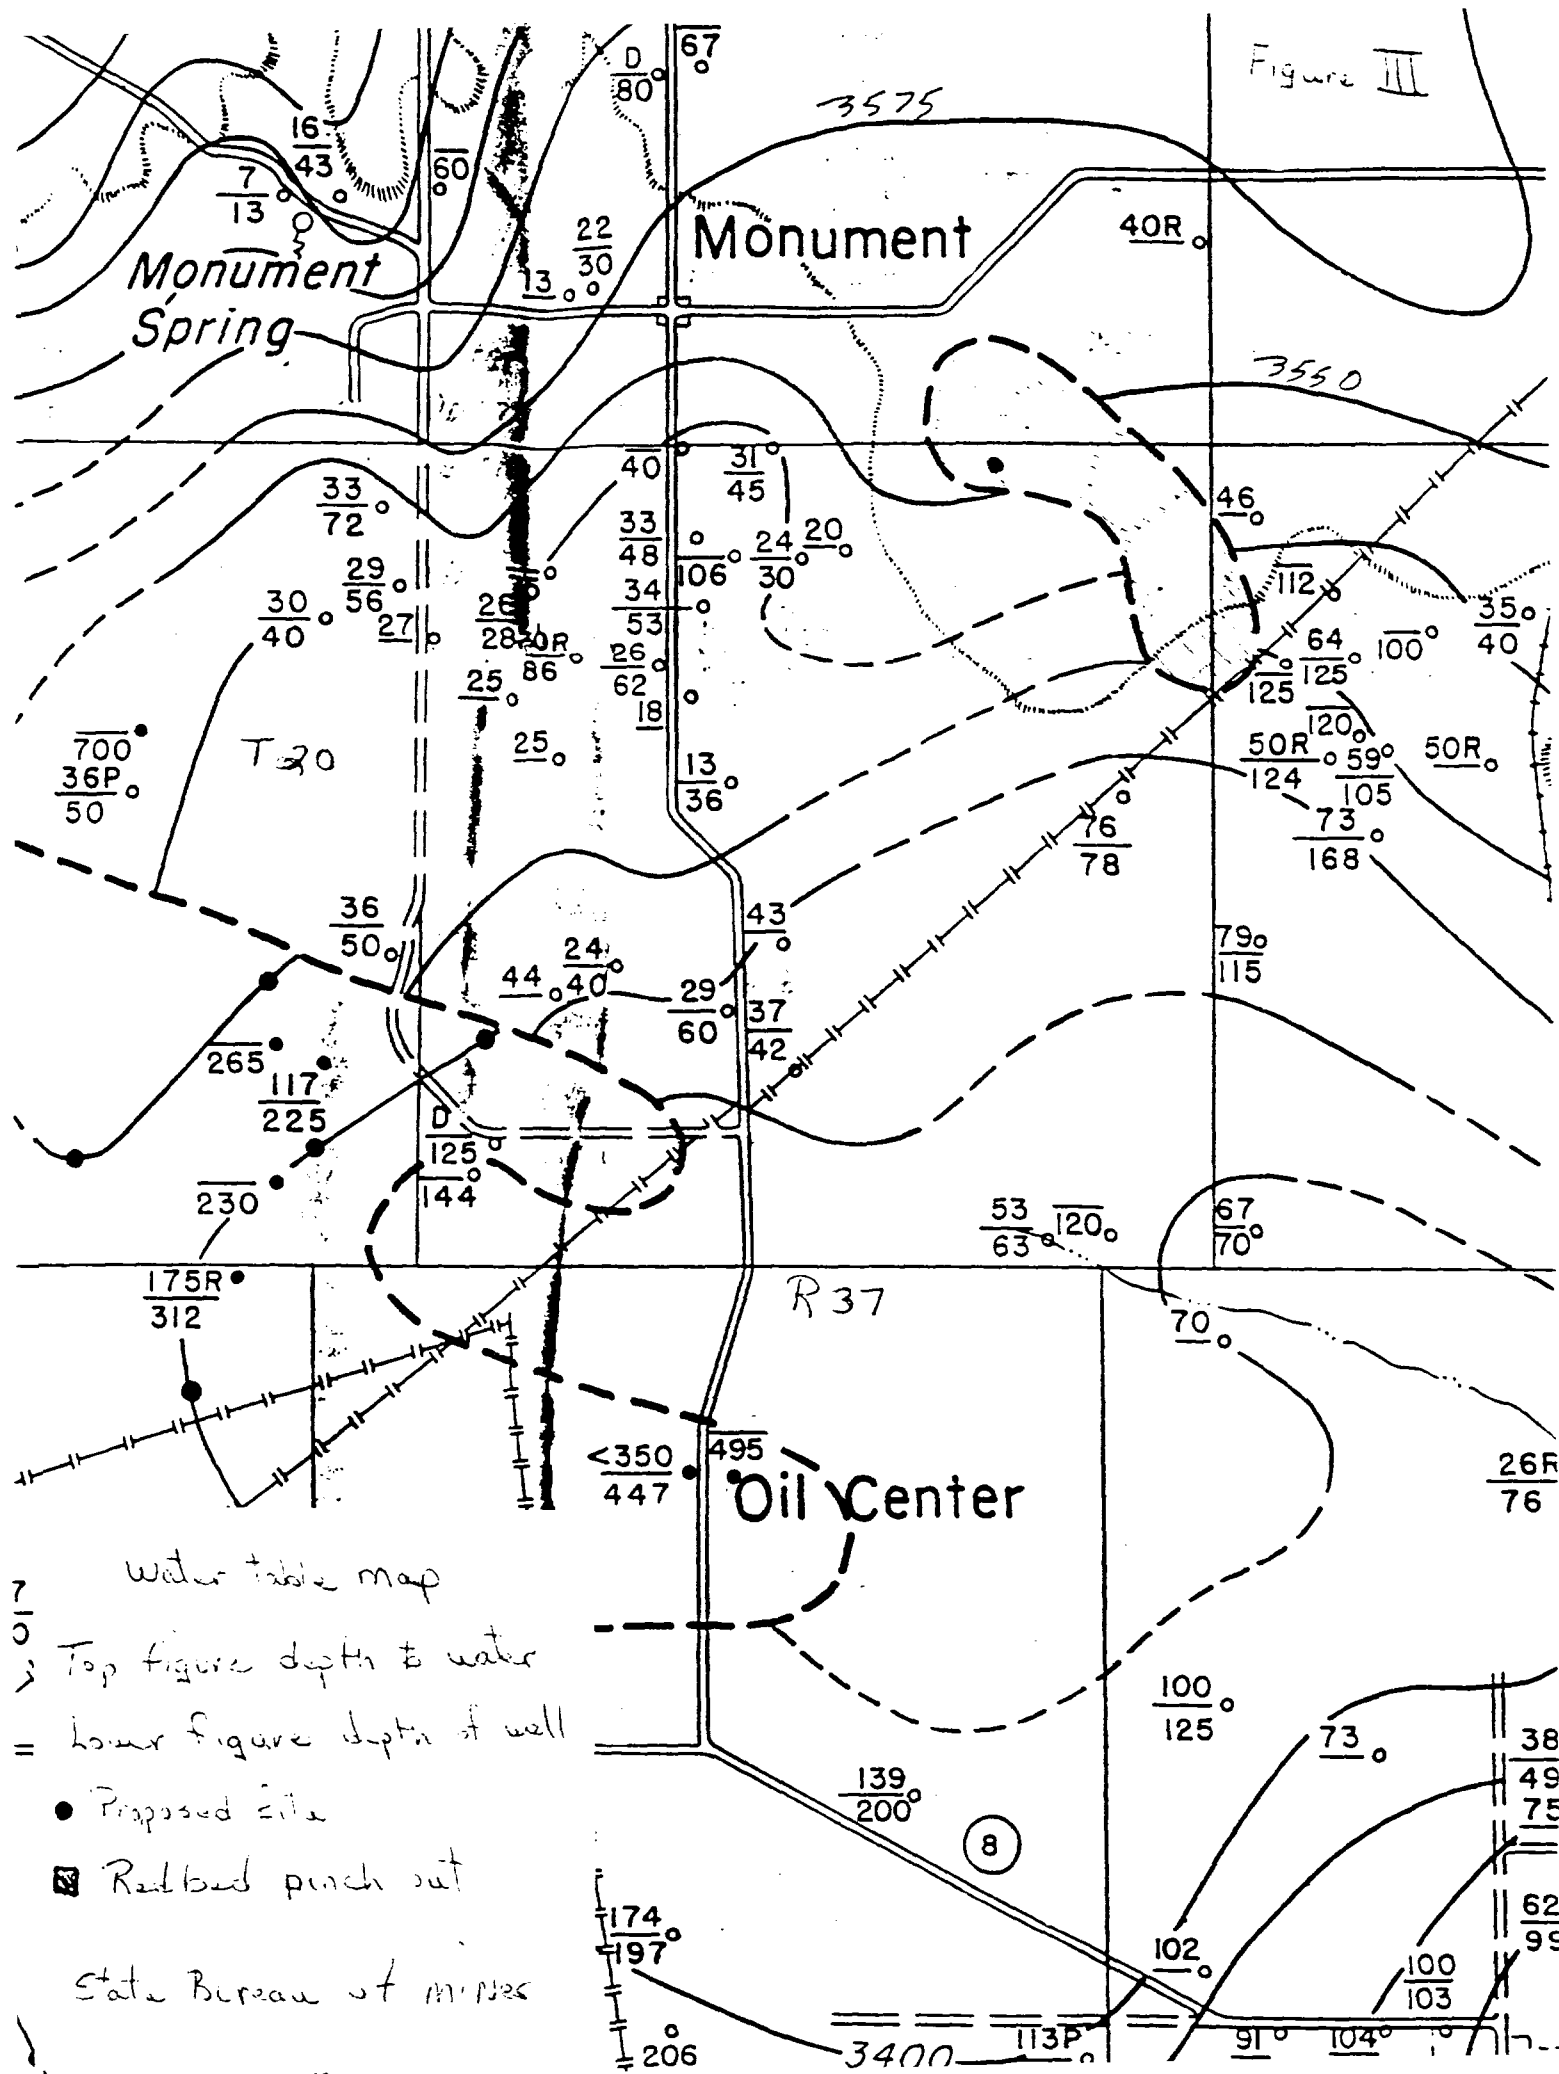 Figure III
67
D
80
3575
16
43
60
7
13
22
30
13
Monument
40R
Monument
Spring
3550
40
31
45
33
72
33
48
106
24
30
20
46
112
29
56
34
53
30
40
27
26
28
20R
86
26
62
35
40
64
125
100
125
25
18
120
700
T 20
25
50R
124
59
105
50R
36P
50
13
36
76
78
73
168
36
50
43
79
115
44
24
40
29
60
37
42
265
117
225
D
125
144
230
53
63
120
67
70
175R
312
R 37
70
<350
447
495
Oil Center
26R
76
Water table map
7
0
Top figure depth to water
Lower figure depth of well
Proposed site
Redbed pinch out
State Bureau of mines
100
125
73
38
49
75
139
200
8
174
197
102
62
99
100
103
206
3400
113P
91
104